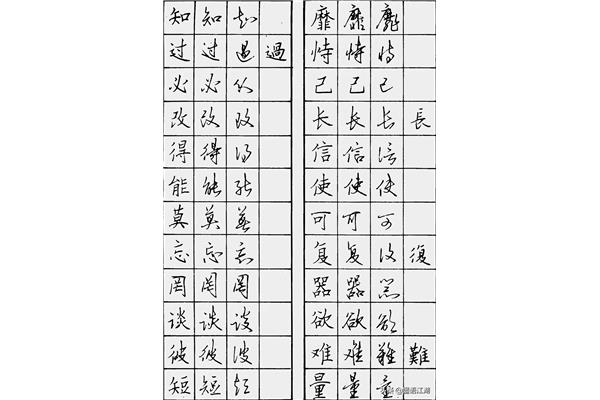 知 知 知
过 过 过 過
必 必 必
改 改 改
得 得 得
能 能 能
莫 莫 莫
忘 忘 忘
罔 罔 罔
谈 谈 谈
彼 彼 彼
短 短 短
靡 靡 靡
恃 恃 恃
己 己 己
长 长 长 長
信 信 信
使 使 使
可 可 可
复 复 复 復
器 器 器
欲 欲 欲
难 难 难 難
量 量 量
语江湖